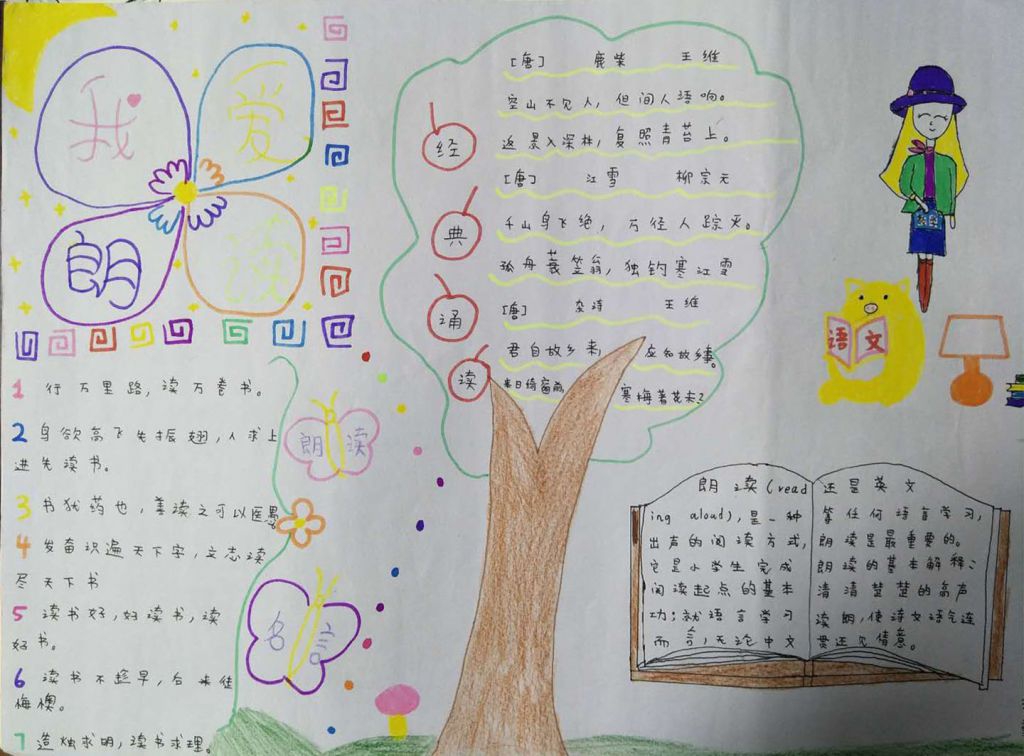 我 爱
朗 读
[唐] 鹿柴 王维
空山不见人，但闻人语响。
返景入深林，复照青苔上。
[唐] 江雪 柳宗元
千山鸟飞绝，万径人踪灭。
孤舟蓑笠翁，独钓寒江雪
[唐] 杂诗 王维
君自故乡来，应知故乡事。
来日绮窗前，寒梅著花未？
经
典
诵
读
语文
1 行万里路，读万卷书。
2 鸟欲高飞先振翅，人求上
进先读书。
3 书犹药也，善读之可以医愚
4 发奋识遍天下字，立志读
尽天下书
5 读书好，好读书，读
好书。
6 读书不趁早，后来徒
悔懊。
7 造烛求明，读书求理。
朗读
名言
朗读（read
ing aloud），是一种
出声的阅读方式，
它是小学生完成
阅读起点的基本
功；就语言学习
而言，无论中文
还是英文
等任何语言学习，
朗读是最重要的。
朗读的基本解释：
清清楚楚的高声
读朗，使诗文语气连
贯还见情意。